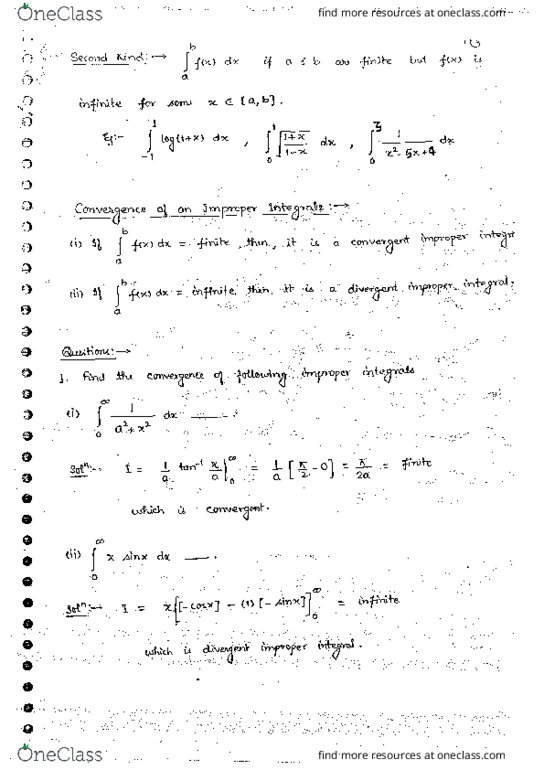 OneClass find more resources at oneclass.com
Second Kind:→ ∫_a^b f(x) dx if a & b are finite but f(x) is
infinite for some x ∈ [a, b].
Eg:- ∫_{-1}^1 log(1+x) dx , ∫_0^1 √((1+x)/(1-x)) dx , ∫_0^3 1/(x² - 5x+4) dx
Convergence of an Improper Integrals:→
(i) If ∫_a^b f(x) dx = finite, then, it is a convergent improper integr
(ii) If ∫_a^b f(x) dx = infinite, then it is a divergent improper integral.
Questions:→
1. Find the convergence of following improper integrals
(i) ∫_0^∞ 1/(a²+x²) dx ___.
Solⁿ:- I = 1/a tan⁻¹ x/a |_0^∞ = 1/a [π/2 - 0] = π/2a = finite
which is convergent.
(ii) ∫_0^∞ x sinx dx ___.
Solⁿ:→ I = x[-cosx] - (1)[-sinx]]_0^∞ = infinite
which is divergent improper integral.
OneClass find more resources at oneclass.com